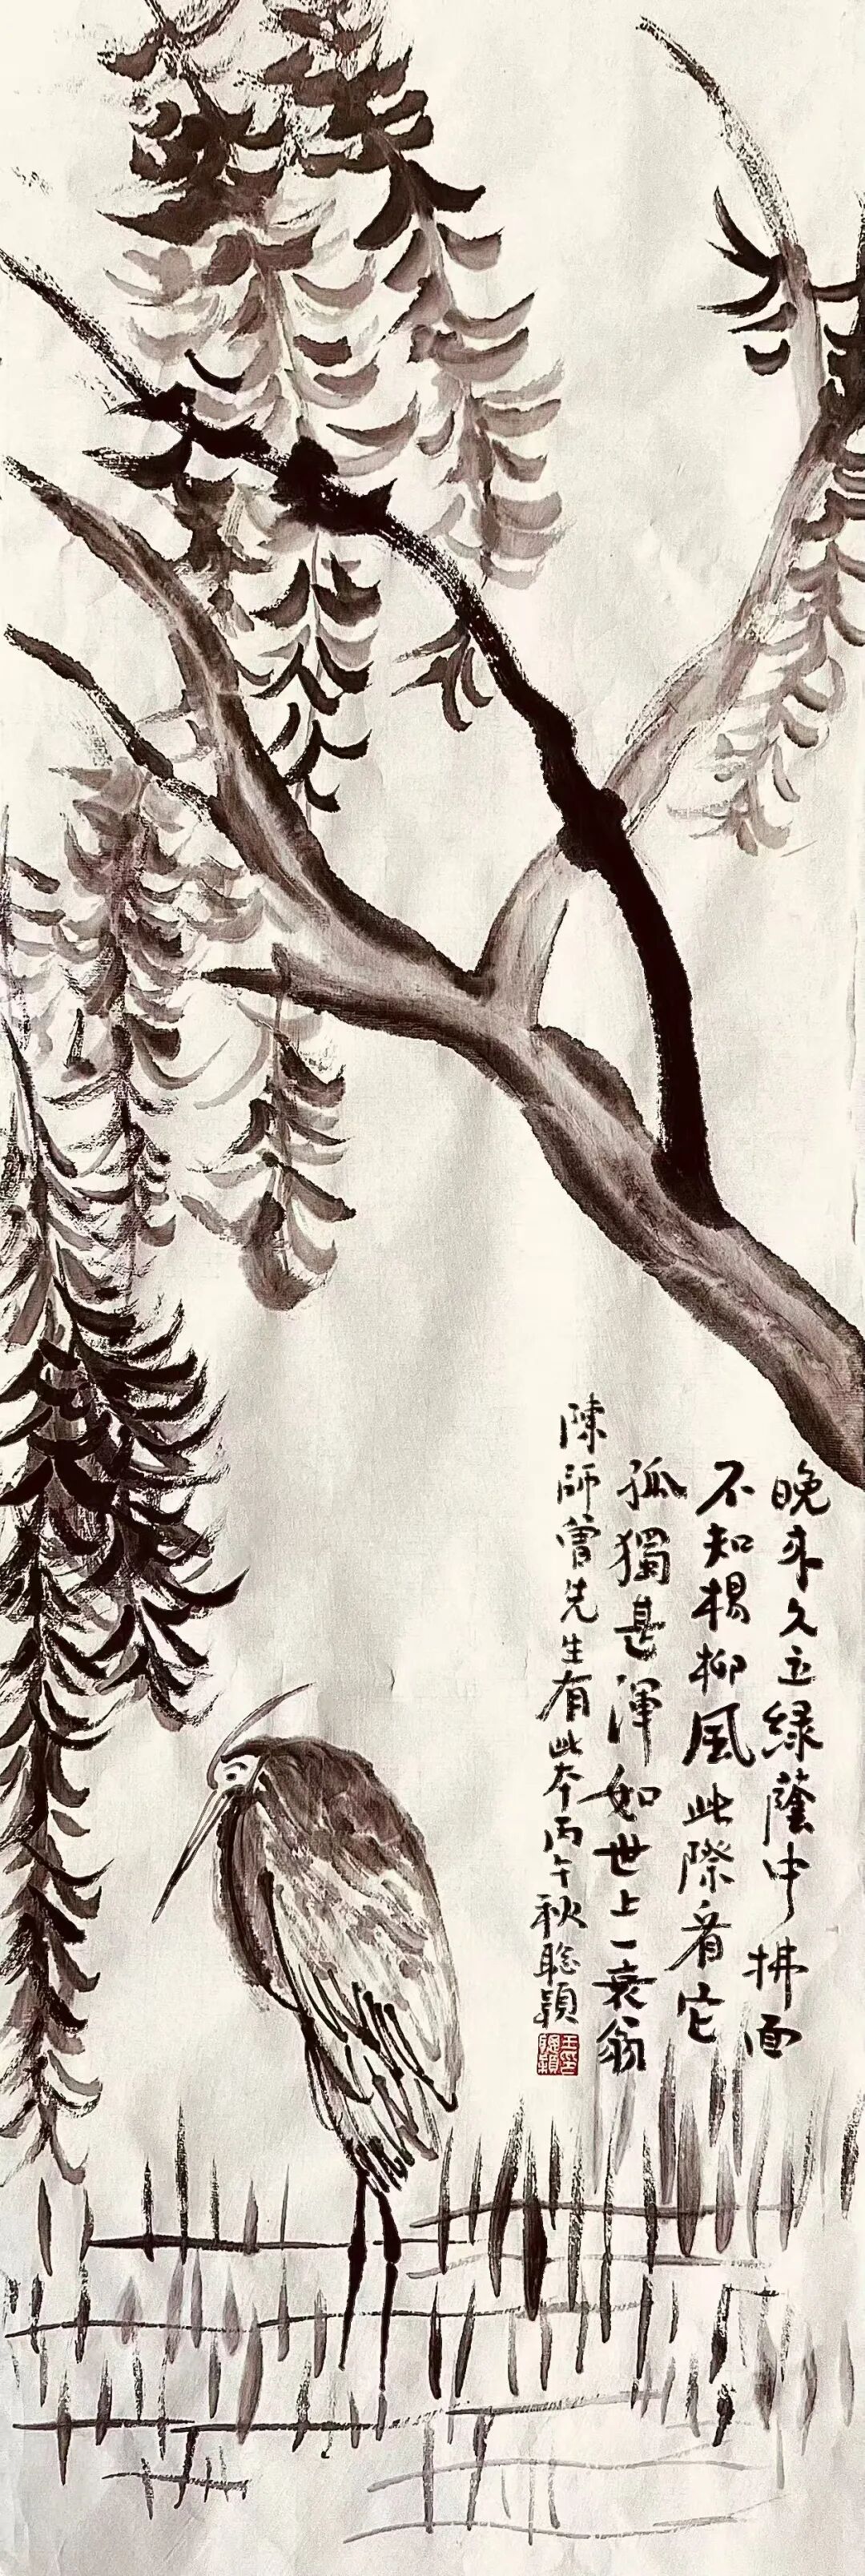 晚来久立綠蔭中拂面
不知楊柳風此際看它
孤獨甚渾如世上一衰翁
陳師曾先生有此本丙午秋聪穎